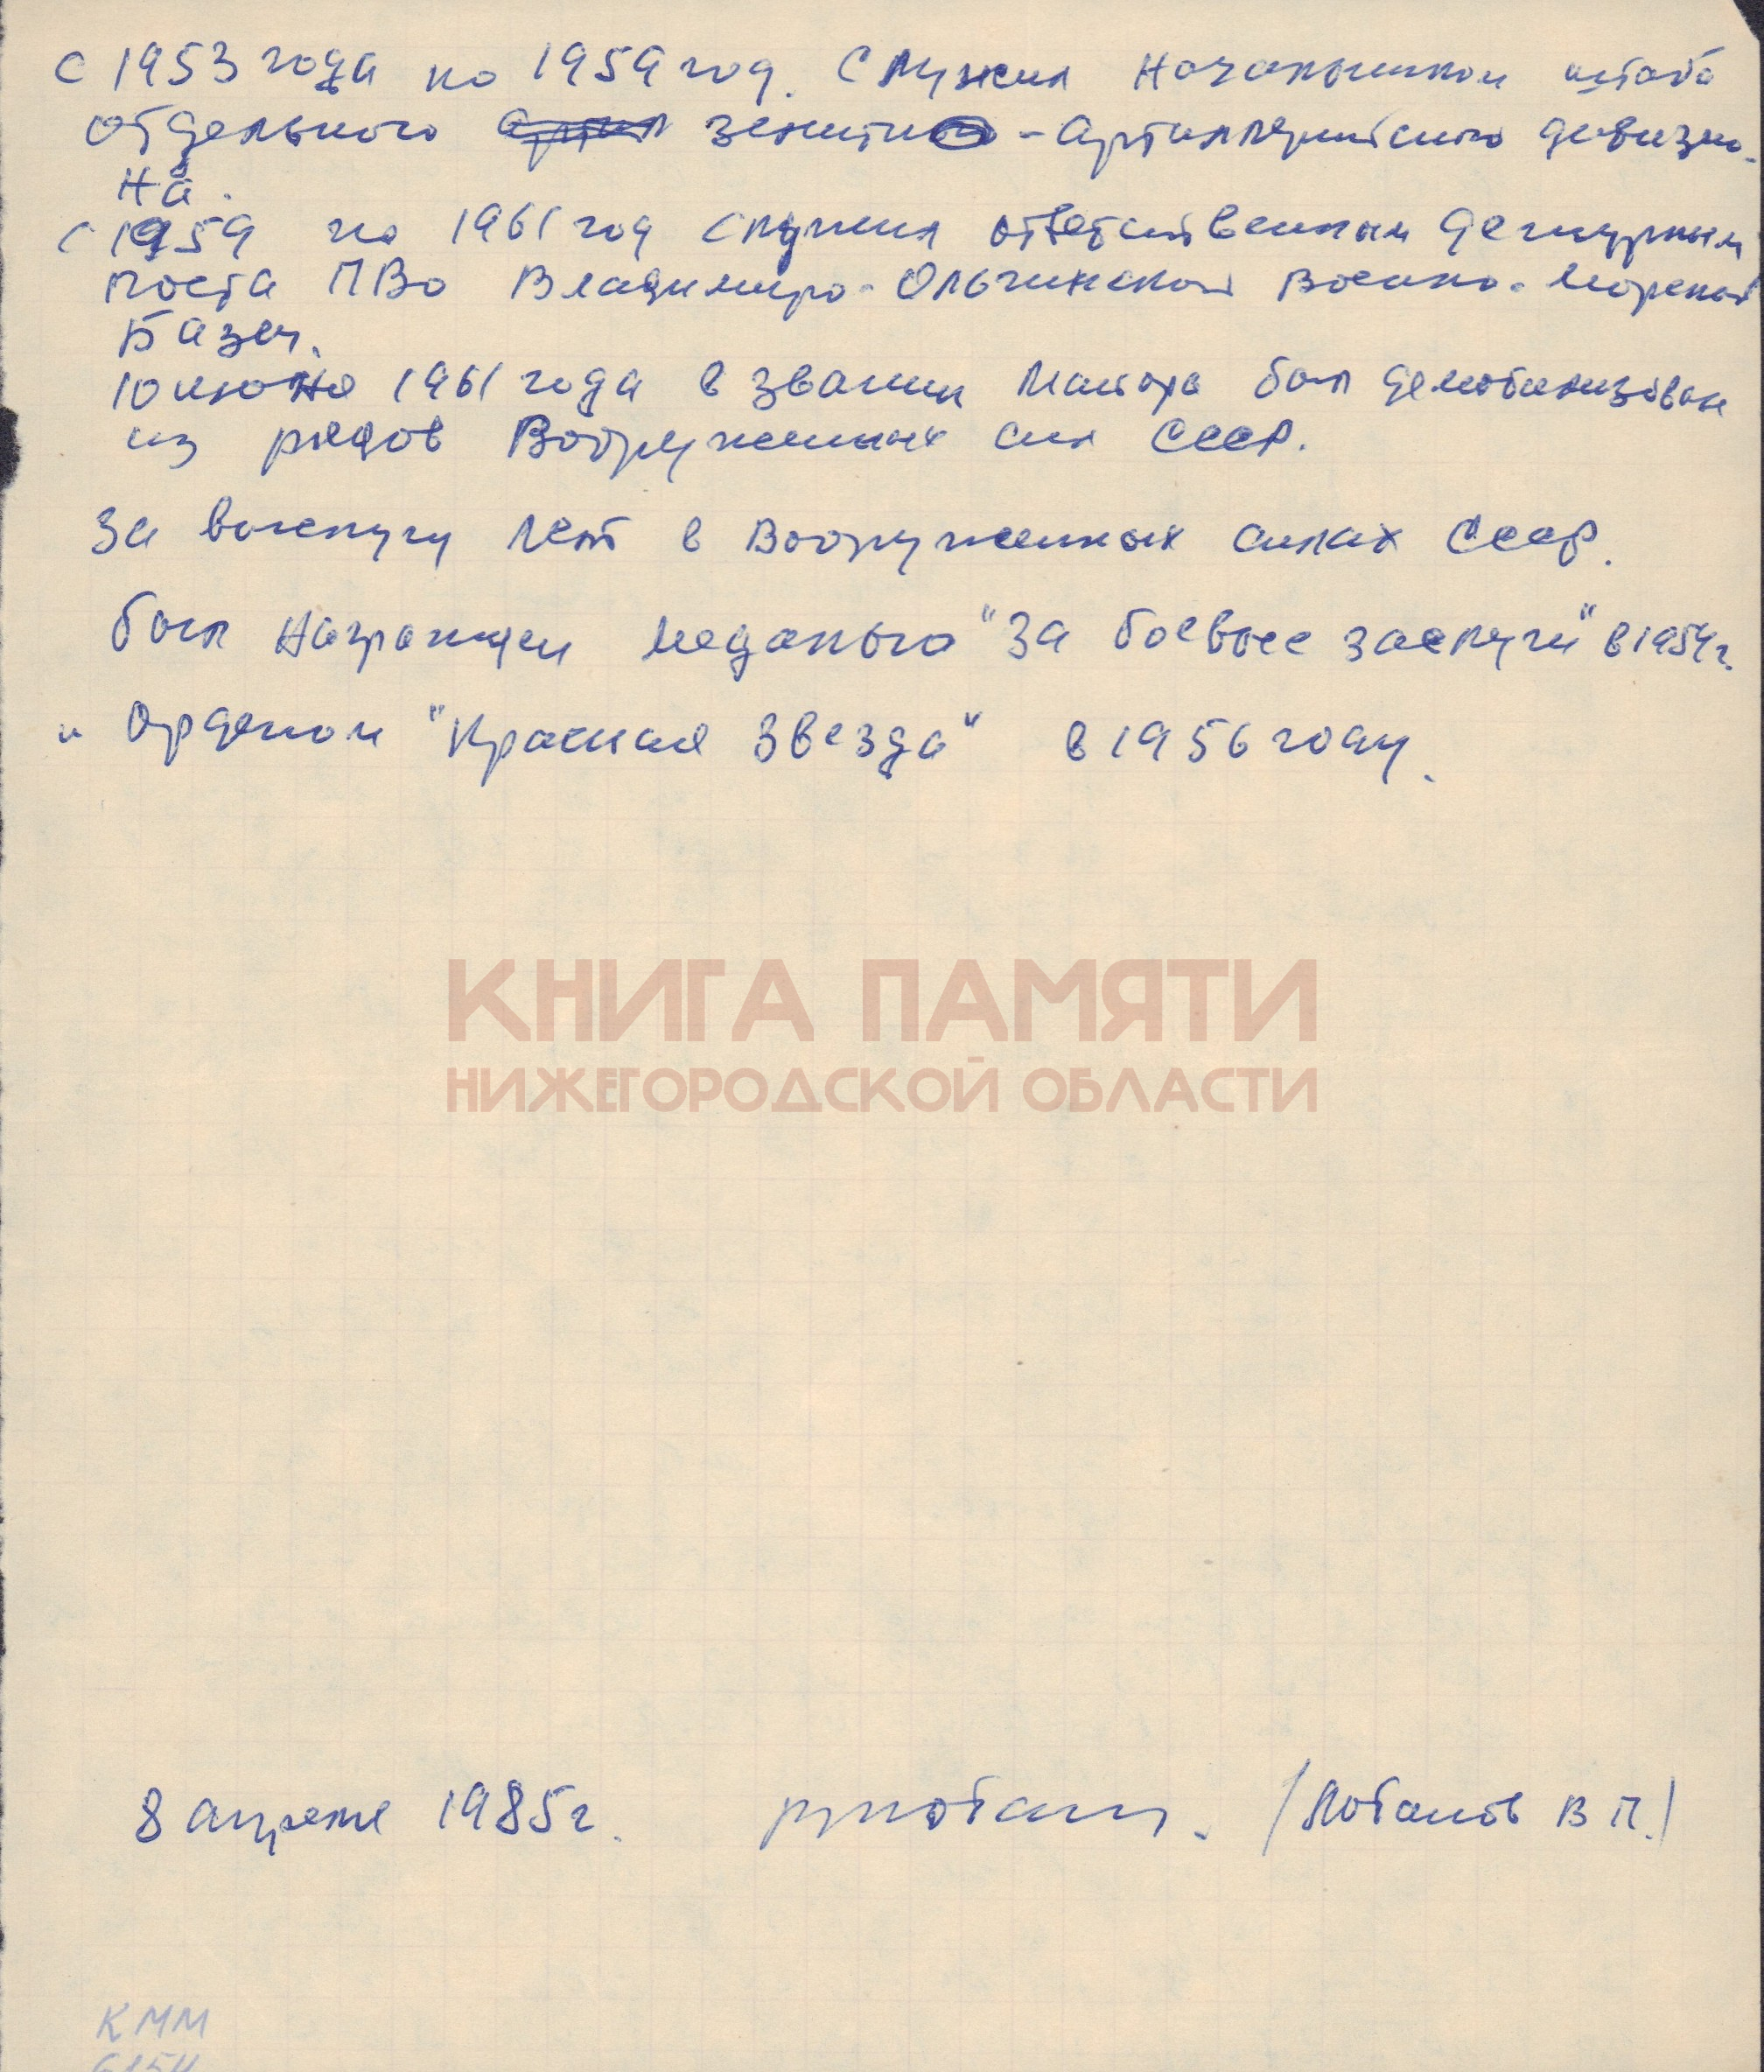 с 1953 года по 1959 год. Служил Начальником штаба
отдельного зенитно-артиллерийского дивизио-
на.
с 1959 по 1961 год служил ответственным дежурным
поста ПВО Владимиро-Ольгинской Военно-Морской
Базы.
10 июня 1961 года в звании Майора был демобилизован
из рядов Вооруженных сил СССР.
За выслугу лет в Вооруженных силах СССР.
был награжден медалью "За боевые заслуги" в 1954 г.
и Орденом "Красная Звезда" в 1956 году.
КНИГА ПАМЯТИ
НИЖЕГОРОДСКОЙ ОБЛАСТИ
8 апреля 1985 г. /Потапов В П./
КММ